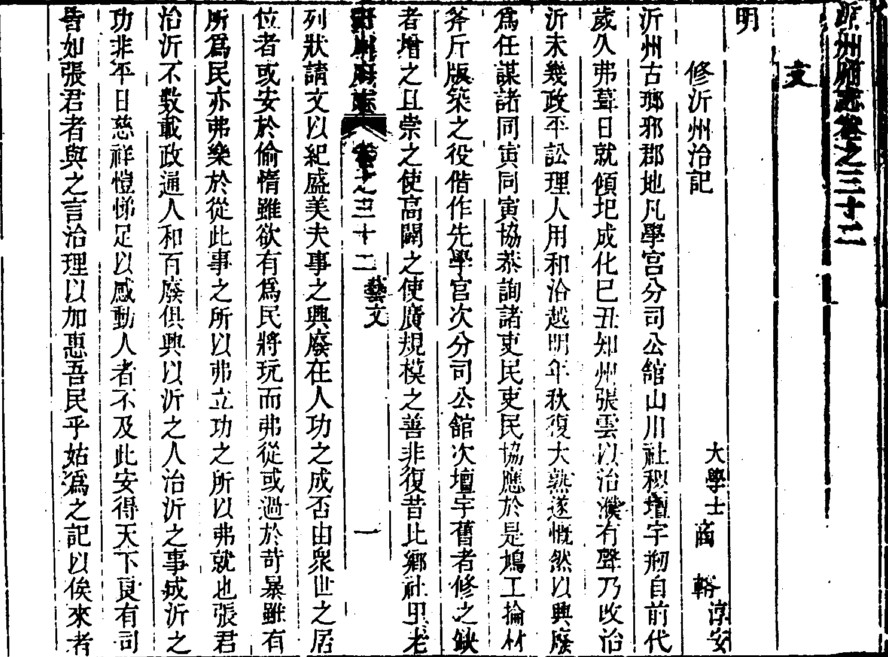 沂州府志卷之三十二
文
明
修沂州治記
大學士商輅淳安
沂州古瑯邪郡地凡學宮分司公館山川社稷壇宇剏自前代
歲久弗葺日就傾圮成化己丑知州張雲以治濮有聲乃改治
沂未幾政平訟理人用和洽越明年秋復大熟遂慨然以興廢
爲任謀諸同寅同寅協恭詢諸吏民吏民協應於是鳩工掄材
斧斤版築之役偕作先學官次分司公館次壇宇舊者修之缺
者增之且崇之使高闢之使廣規模之善非復昔比鄉社里老
沂州府志 卷之三十二 藝文 一
列狀請文以紀盛美夫事之興廢在人功之成否由衆世之居
位者或安於偷惰雖欲有爲民將玩而弗從或過於苛暴雖有
所爲民亦弗樂於從此事之所以弗立功之所以弗就也張君
治沂不數載政通人和百廢俱興以沂之人治沂之事成沂之
功非平日慈祥愷悌足以感動人者不及此安得天下良有司
皆如張君者與之言治理以加惠吾民乎姑爲之記以俟來者